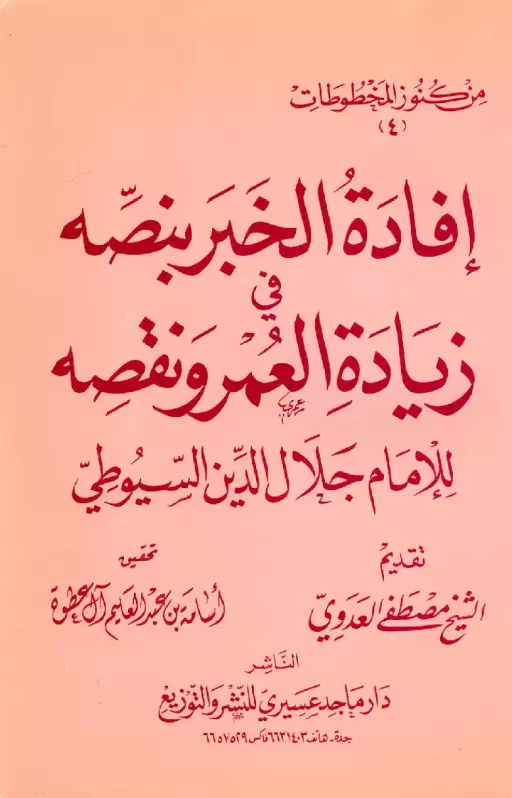 مِنْ كُنُوزِ المَخْطُوطَاتِ
(٤)
إفَادَةُ الخَبَر بنصِّه
في
زيَادَةِ العُمْر وَنقصِه
لِلإمَام جَلَال الدِّين السّيُوطِيّ
تقديم
الشيخ مصطفى العدويّ
تحقيق
أسامة بن عبد العليم آل عطوة
النَّاشِر
دَار مَاجد عَسِيري للنَّشْر وَالتَّوزيع
جدة - هاتف ٦٦٣١٤٠٣ فاكس ٦٦٥٧٥٢٩